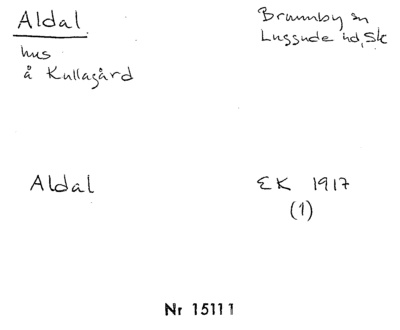 Aldal
Brunnby sn
Luggude hd, Sk
hus
å Kullagård
Aldal
EK 1917
(1)
Nr 15111